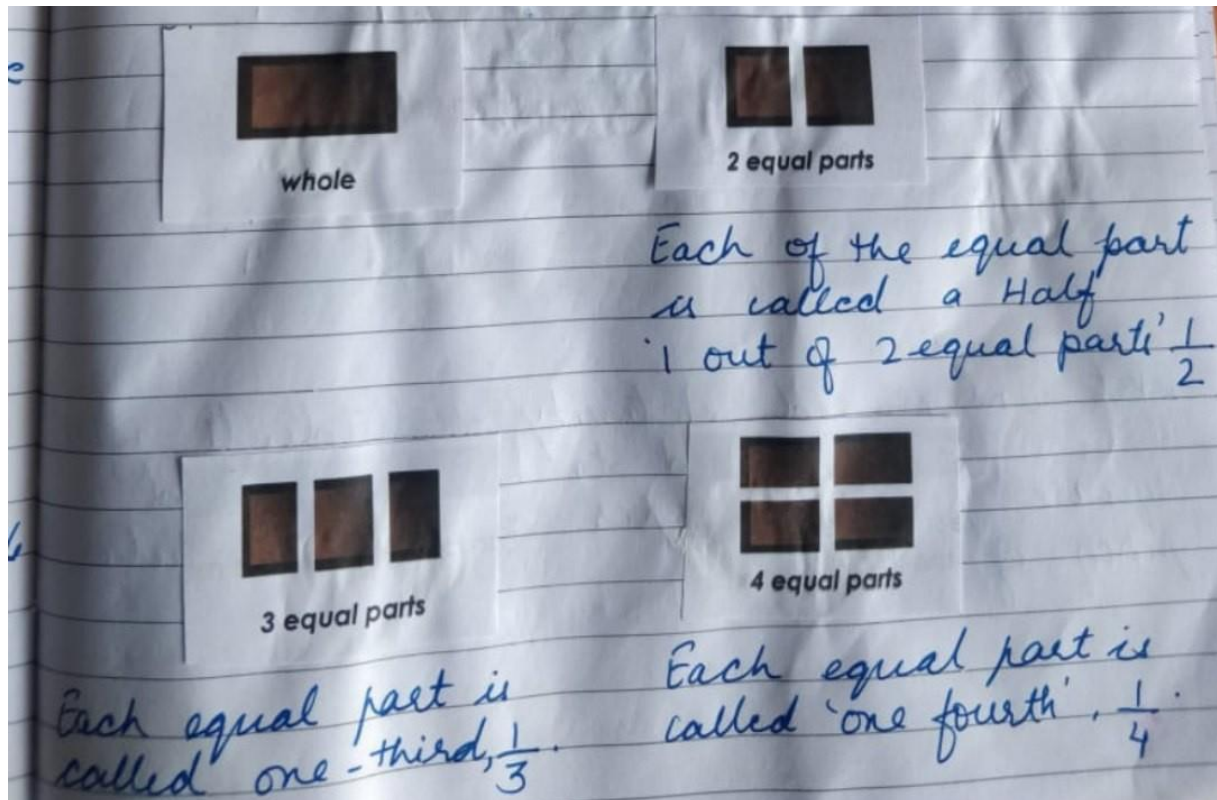 whole
2 equal parts
Each of the equal part
is called a Half
'1 out of 2 equal parts' 1/2
3 equal parts
Each equal part is
called one-third, 1/3.
4 equal parts
Each equal part is
called 'one fourth', 1/4.